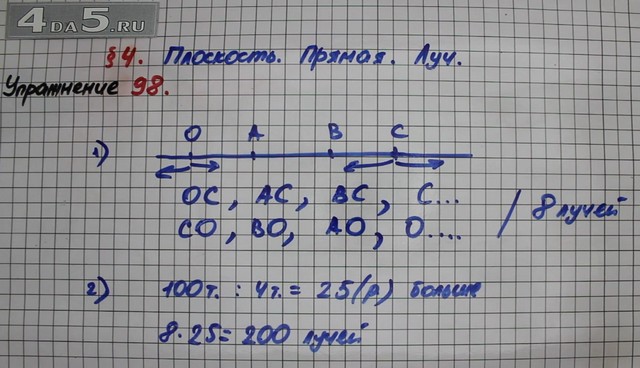 4DA5.RU
§4. Плоскость. Прямая. Луч.
Упражнение 98.
O A B C
1)
OC, AC, BC, C...
CO, BO, AO, O.... / 8 лучей
2) 100т. : 4т. = 25(р) больше
8·25=200 лучей